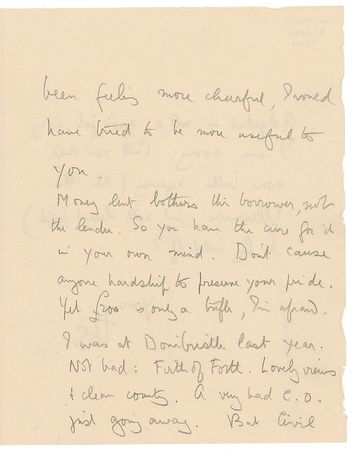 been feeling more cheerful, I would
have tried to be more useful to
you.
Money lent bothers the borrower, not
the lender. So you have the cure for it
in your own mind. Don't cause
anyone hardship to preserve your pride.
Yet £200 is only a trifle, I'm afraid.
I was at Donibristle last year.
Not bad: Firth of Forth. Lovely views
+ clean country. A very bad C.O.
just going away. But Civil